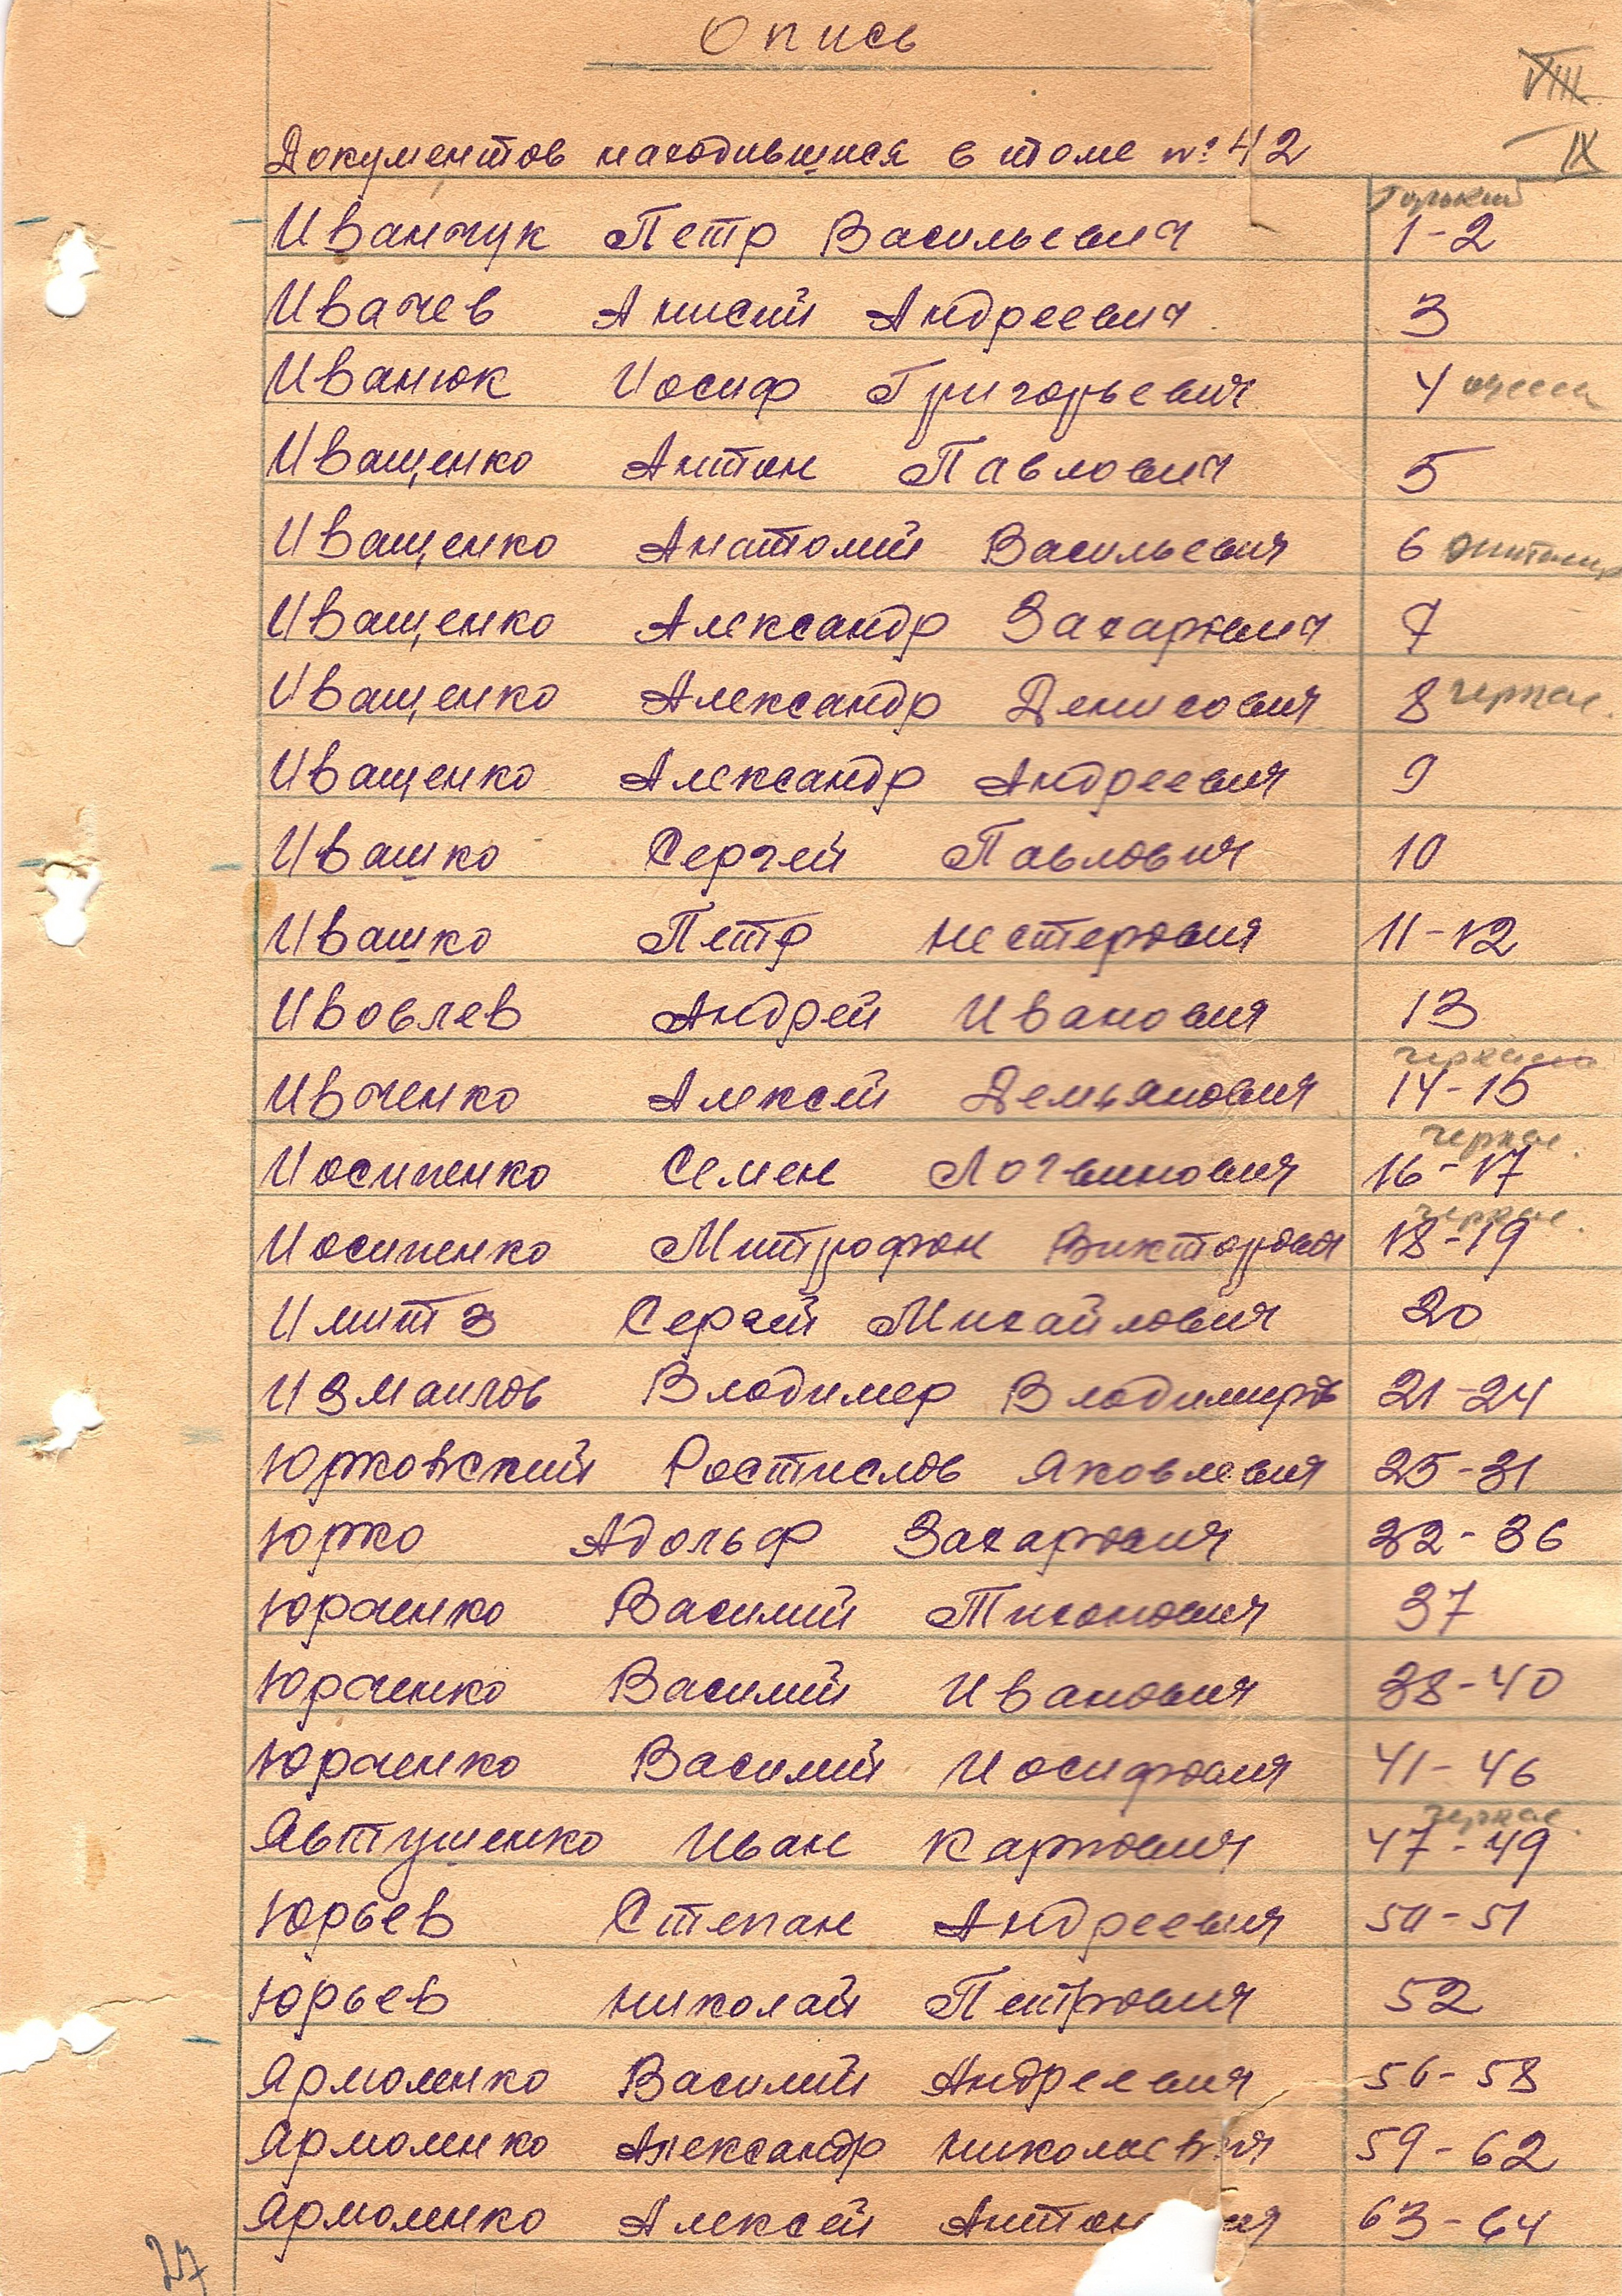 Опись
VIII
IX
Документов находившихся в томе № 42
Иванчук Петр Васильевич 1-2
Ивачев Анисий Андреевич 3
Иванюк Иосиф Григорьевич 4
Иващенко Антон Павлович 5
Иващенко Анатолий Васильевич 6
Иващенко Александр Захарович 7
Иващенко Александр Денисович 8 черкас.
Иващенко Александр Андреевич 9
Ивашко Сергей Павлович 10
Ивашко Петр Нестерович 11-12
Ивовлев Андрей Иванович 13
Ивченко Алексей Демьянович 14-15
черкас.
Иосипенко Семен Логвинович 16-17
черкас.
Иосипенко Митрофан Викторович 18-19
Сергей Михайлович 20
Измаилов Владимер Владимиров 21-24
Юрковский Ростислав Яковлевич 25-31
Юрко Адольф Захарович 32-36
Юрченко Василий Тихонович 37
Юрченко Василий Иванович 38-40
Юрченко Василий Иосифович 41-46
черкас.
Явтушенко Иван Карпович 47-49
Юрьев Степан Андреевич 50-51
Юрьев Николай Петрович 52
Ярмоленко Василий Андреевич 56-58
Ярмоленко Александр Николаевич 59-62
Ярмоленко Алексей 63-64
27